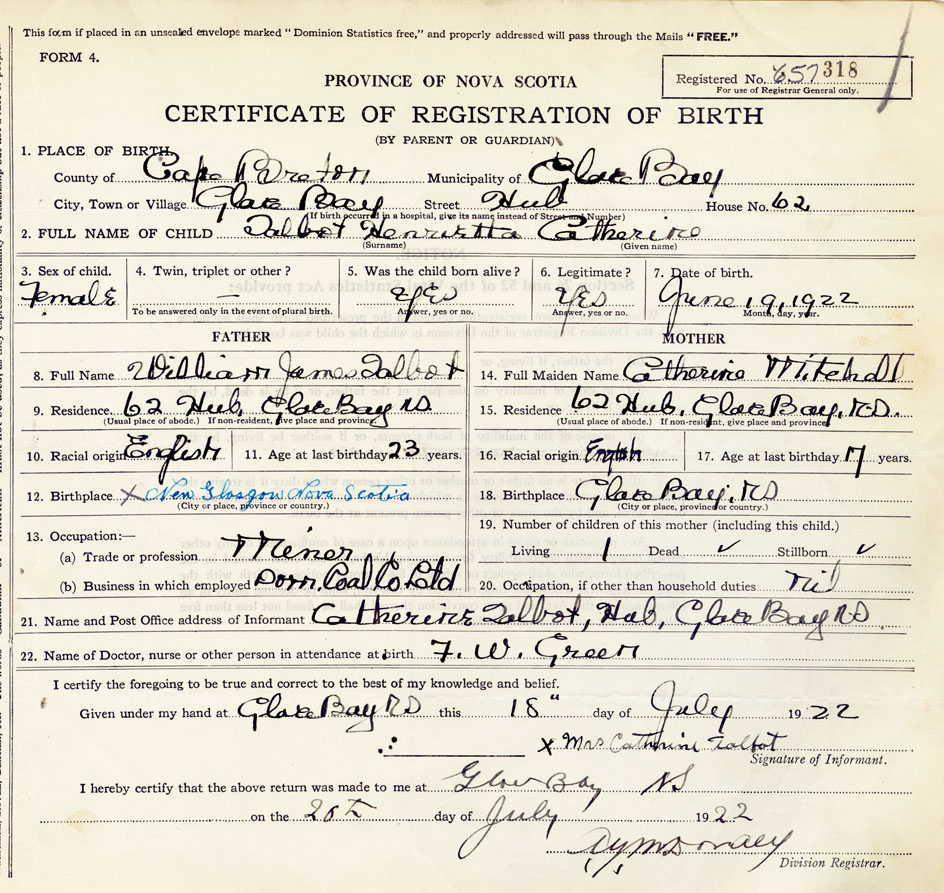 This form if placed in an unsealed envelope marked "Dominion Statistics free," and properly addressed will pass through the Mails "FREE."
FORM 4.
PROVINCE OF NOVA SCOTIA
Registered No. 657 318
For use of Registrar General only.
CERTIFICATE OF REGISTRATION OF BIRTH
(BY PARENT OR GUARDIAN)
1. PLACE OF BIRTH,
County of Cape Breton Municipality of Glace Bay
City, Town or Village Glace Bay Street Hub House No. 62
(If birth occurred in a hospital, give its name instead of Street and Number)
2. FULL NAME OF CHILD Talbot Henrietta Catherine
(Surname) (Given name)
3. Sex of child. 4. Twin, triplet or other? 5. Was the child born alive? 6. Legitimate? 7. Date of birth.
Female — Yes Yes June 19, 1922
To be answered only in the event of plural birth. Answer, yes or no. Answer, yes or no. Month, day, year.
FATHER MOTHER
8. Full Name William James Talbot 14. Full Maiden Name Catherine Mitchell
9. Residence. 62 Hub, Glace Bay NS 15. Residence 62 Hub, Glace Bay, N.S.
(Usual place of abode.) If non-resident, give place and province. (Usual place of abode.) If non-resident, give place and province.
10. Racial origin English 11. Age at last birthday 23 years. 16. Racial origin English 17. Age at last birthday 17 years.
12. Birthplace X New Glasgow Nova Scotia 18. Birthplace Glace Bay, NS
(City or place, province or country.) (City or place, province or country.)
13. Occupation:— 19. Number of children of this mother (including this child.)
(a) Trade or profession Miner Living 1 Dead ✓ Stillborn ✓
(b) Business in which employed Dom. Coal Co Ltd 20. Occupation, if other than household duties Nil
21. Name and Post Office address of Informant Catherine Talbot, Hub, Glace Bay NS
22. Name of Doctor, nurse or other person in attendance at birth F. W. Green
I certify the foregoing to be true and correct to the best of my knowledge and belief.
Given under my hand at Glace Bay NS this 18" day of July 1922
X Mrs Catherine Talbot
Signature of Informant.
I hereby certify that the above return was made to me at Glace Bay NS
on the 20th day of July 1922
Division Registrar.